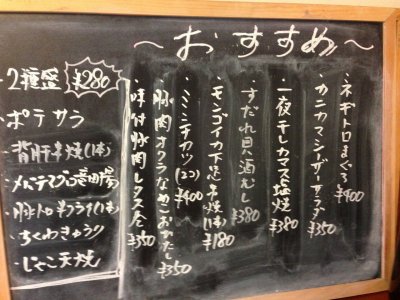 ～おすすめ～
・ネギトロまぐろ ¥400
・カニカマシーザーサラダ ¥350
・一夜干しカマス塩焼 ¥380
・すだれ貝酒むし ¥380
・モンゴイカ下足串焼(1本) ¥180
・ミニミンチカツ(2コ) ¥400
・豚肉オクラなめこおろだし ¥350
・味付豚肉レタス ¥350
・2種盛 ¥280
・ポテサラ
・背肝串焼(1本)
・豚トロ串フライ(1本)
・ちくわきゅうり
・じゃこ天焼